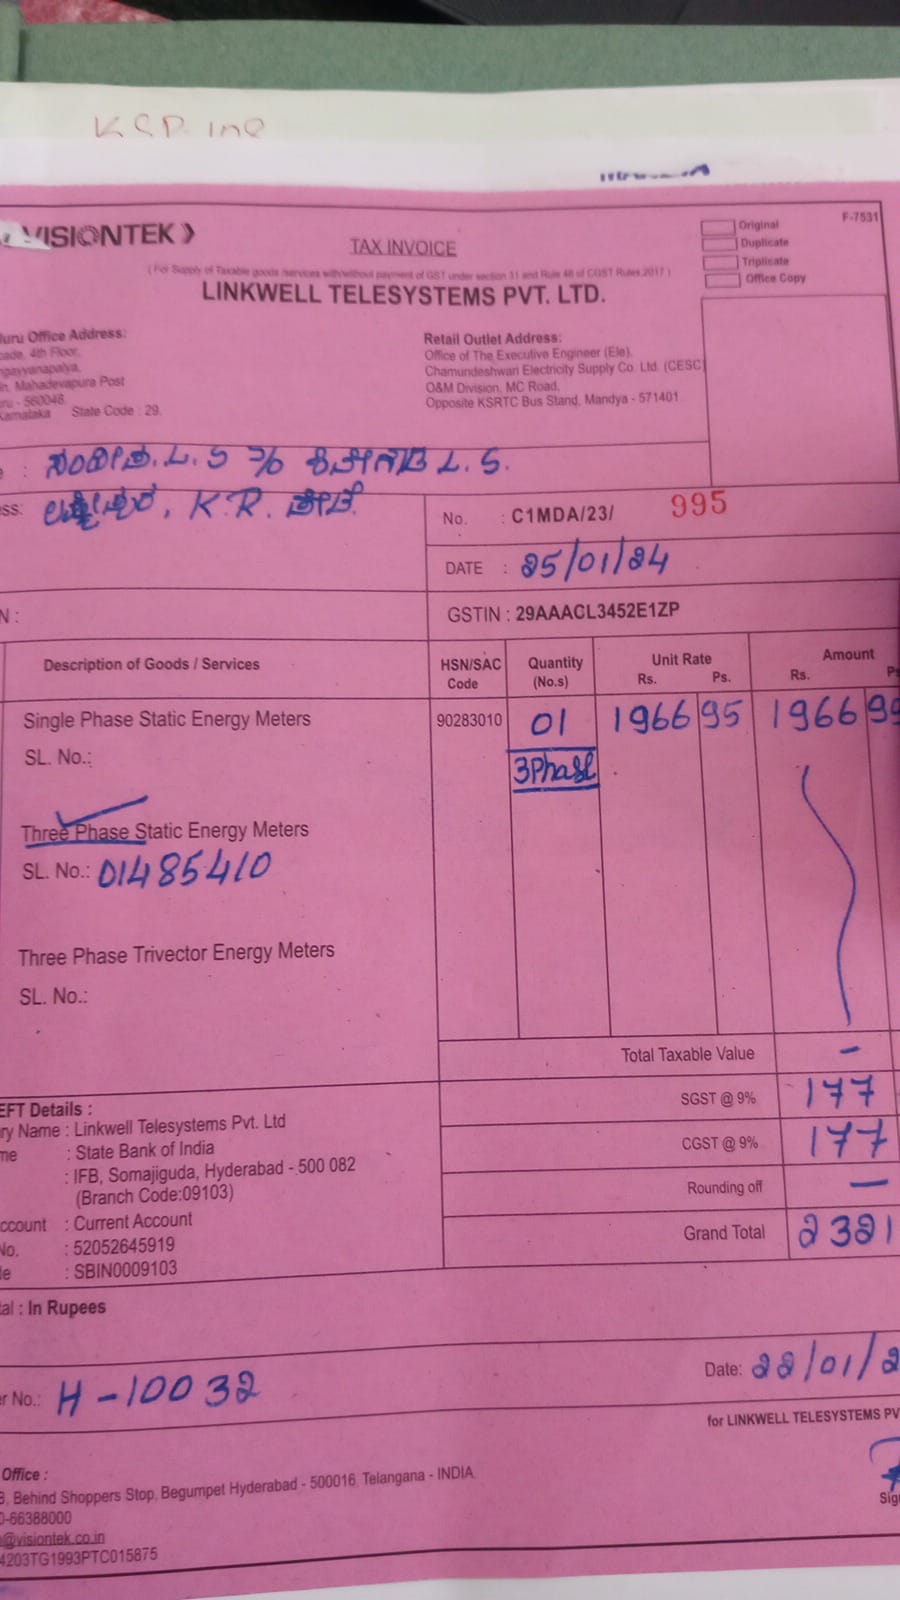 KSP ine
VISIONTEK
TAX INVOICE
Original
Duplicate
Triplicate
Office Copy
F-7531
( For Supply of Taxable goods /services with/without payment of GST under section 31 and Rule 46 of CGST Rules,2017 )
LINKWELL TELESYSTEMS PVT. LTD.
uru Office Address:
4th Floor,
ngayyanapalya,
Mahadevapura Post
ru - 560048.
Karnataka State Code : 29.
Retail Outlet Address:
Office of The Executive Engineer (Ele),
Chamundeshwari Electricity Supply Co. Ltd. (CESC)
O&M Division, MC Road,
Opposite KSRTC Bus Stand, Mandya - 571401.
L. S % L. S.
ess: K.R. ಪೇಟೆ.
No. : C1MDA/23/ 995
DATE : 25/01/24
N :
GSTIN : 29AAACL3452E1ZP
Description of Goods / Services
HSN/SAC Code
Quantity (No.s)
Unit Rate
Rs. Ps.
Amount
Rs. Ps
Single Phase Static Energy Meters 90283010 01 1966 95 1966 95
SL. No.:
3Phase
Three Phase Static Energy Meters
SL. No.: 01485410
Three Phase Trivector Energy Meters
SL. No.:
Total Taxable Value -
SGST @ 9% 177
CGST @ 9% 177
Rounding off -
Grand Total 2321
EFT Details :
ry Name : Linkwell Telesystems Pvt. Ltd
me : State Bank of India
: IFB, Somajiguda, Hyderabad - 500 082
(Branch Code:09103)
ccount : Current Account
No. : 52052645919
de : SBIN0009103
tal : In Rupees
r No.: H-10032
Date: 22/01/2
for LINKWELL TELESYSTEMS PV
Office :
8, Behind Shoppers Stop, Begumpet Hyderabad - 500016, Telangana - INDIA.
0-66388000
@visiontek.co.in
4203TG1993PTC015875
Sig